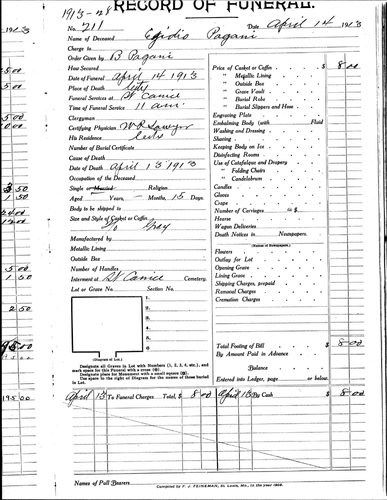 RECORD OF FUNERAL.
1913-28
No. 211 Date April 14 1913
Name of Deceased Egidio Pagani
Charge to
Order Given by B Pagani
How Secured
Date of Funeral April 14 1913
Place of Death City
Funeral Services at St Canice
Time of Funeral Service 11 am.
Clergyman
Certifying Physician W P Sawyer
His Residence City
Number of Burial Certificate
Cause of Death
Date of Death April 13 1913
Occupation of the Deceased
Single or Married Religion
Aged Years, - Months, 15 Days
Body to be shipped to
Size and Style of Casket or Coffin
Gray
Manufactured by
Metallic Lining
Outside Box
Number of Handles
Interment at St Canice Cemetery.
Lot or Grave No. Section No.
1.
2.
3.
4.
5.
6
(Diagram of Lot.)
Designate all Graves in Lot with Numbers (1, 2, 3, 4, etc.), and
mark space for this Funeral with a cross
Designate place for Monument with a small square
Use space to the right of Diagram for the names of those buried
in Lot.
Price of Casket or Coffin $ 8 00
" Metallic Lining
" Outside Box
" Grave Vault
" Burial Robe
" Burial Slippers and Hose
Engraving Plate
Embalming Body (with Fluid
Washing and Dressing
Shaving
Keeping Body on Ice
Disinfecting Rooms
Use of Catafalque and Drapery
" Folding Chairs
" Candelabrum
Candles
Gloves
Crape
Number of Carriages @ $
Hearse
Wagon Deliveries
Death Notices in Newspapers.
(Names of Newspapers)
Flowers
Outlay for Lot
Opening Grave
Lining Grave
Shipping Charges, prepaid
Removal Charges
Cremation Charges
Total Footing of Bill $ 8 00
By Amount Paid in Advance
Balance
Entered into Ledger, page or below.
April 13 To Funeral Charges Total, $ 8 00 April 13 By Cash $ 8 00
Names of Pall Bearers
Compiled by F. J. FEINEMAN, St. Louis, Mo., in the year 1898.